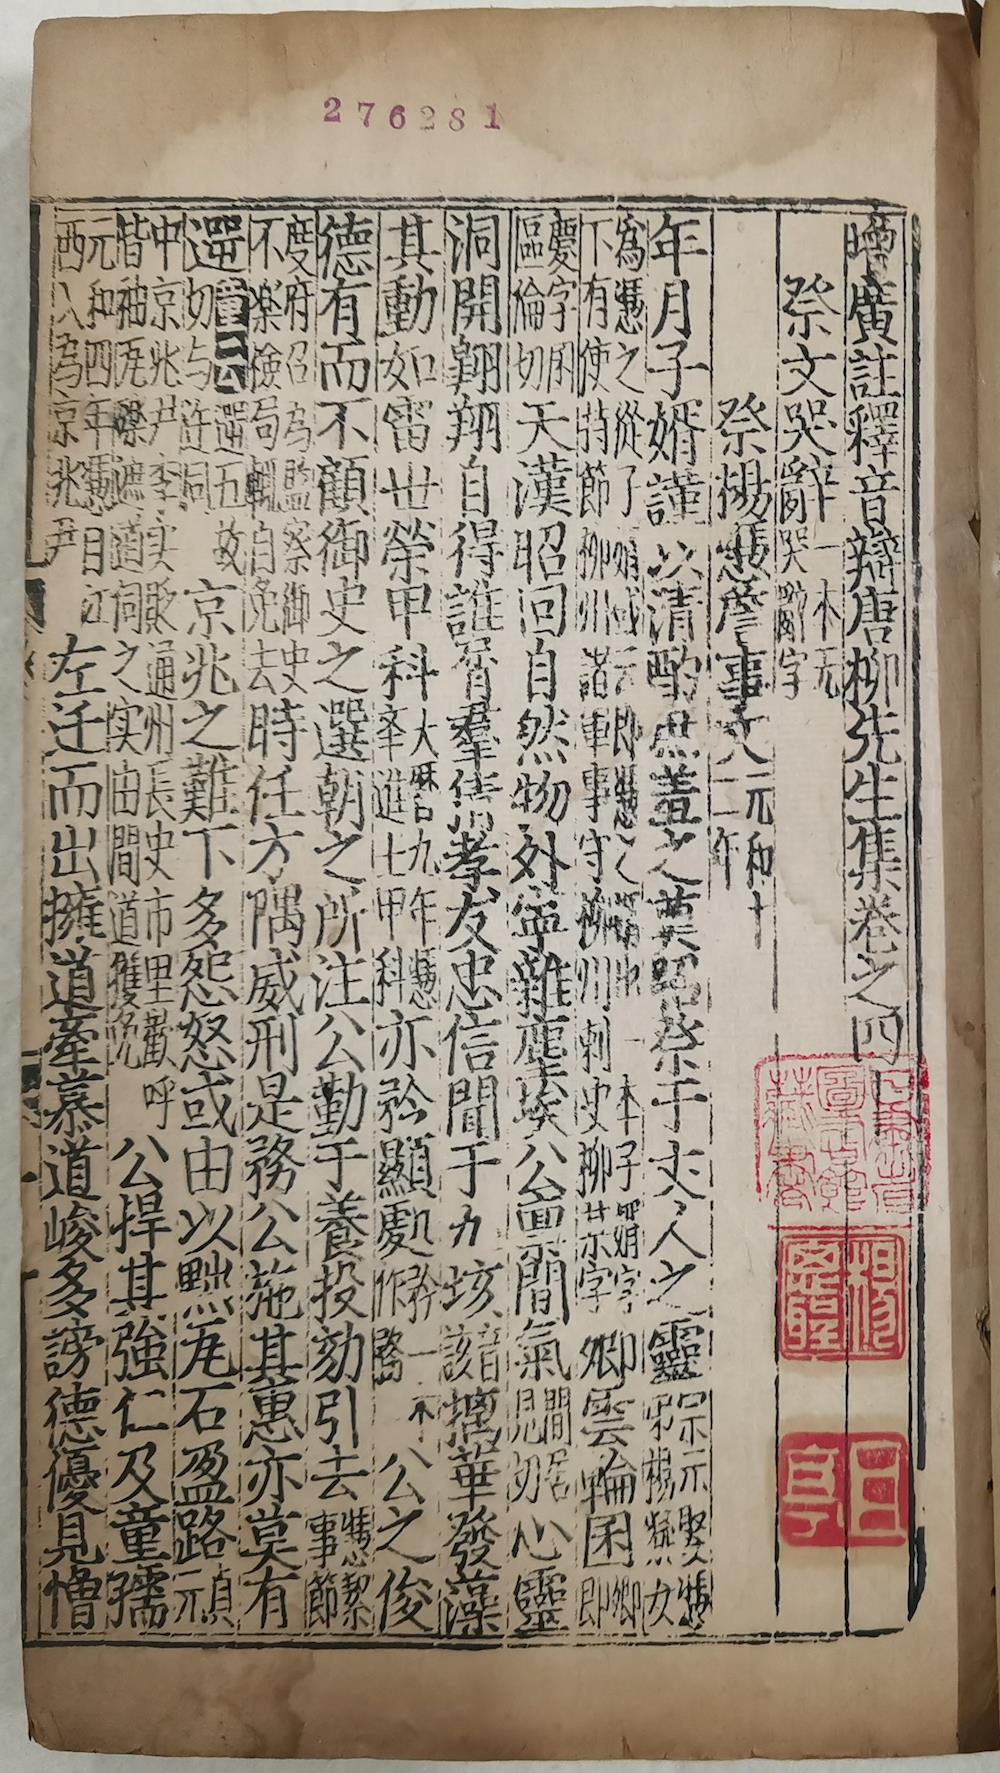 276281
增廣註釋音辯唐柳先生集卷之四
祭文哭辭一本无哭辭字
祭楊憑詹事文元和十二年
年月子壻謹以清酌庶羞之奠昭祭于丈人之靈宗元娶憑
爲憑之從子 卽憑之壻也一本子壻字
下有使持節柳州諸軍事守柳州刺史柳某字卿雲輪囷卽卿
慶字囷區倫切天漢昭回自然物外寧雜塵埃公稟間氣間居見切心靈
洞開翺翔自得誰屑羣猜孝友忠信聞于九垓音該摛華發藻
其動如雷世榮甲科大曆九年憑舉進士甲科亦矜顯處矜一本作務公之俊
德有而不顧御史之選朝之所注公勤于養投劾引去憑絜事節
度府召爲監察御史不樂檢局輒自免去時任方隅威刑是務公施其惠亦莫有
遻童云遻五故切与迕同京兆之難下多怨怒或由以黜瓦石盈路貞元
中京兆尹李实貶通州長史市里歡呼皆袖瓦礫遮道伺之实由間道獲免公悍其強仁及童孺
元和四年憑自江西入爲京兆尹左迁而出擁道牽慕道峻多謗德優見憎
圖書館藏書
日